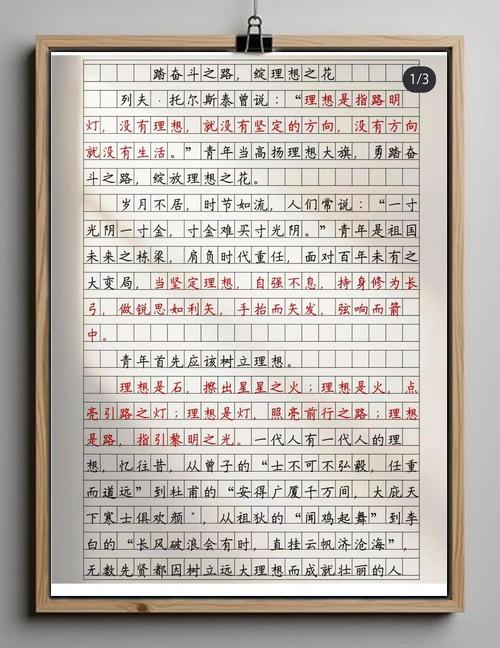 踏奋斗之路，绽理想之花
1/3
列夫·托尔斯泰曾说：“理想是指路明
灯，没有理想，就没有坚定的方向，没有方向
就没有生活。”青年当高扬理想大旗，勇踏奋
斗之路，绽放理想之花。
岁月不居，时节如流，人们常说：“一寸
光阴一寸金，寸金难买寸光阴。”青年是祖国
未来之栋梁，肩负时代重任，面对百年未有之
大变局，当坚定理想，自强不息，持身修为长
弓，做锐思如利矢，手抬而矢发，弦响而箭
中。
青年首先应该树立理想。
理想是石，擦出星星之火；理想是火，点
亮引路之灯；理想是灯，照亮前行之路；理想
是路，指引黎明之光。一代人有一代人的理
想，忆往昔，从曾子的“士不可不弘毅，任重
而道远”到杜甫的“安得广厦千万间，大庇天
下寒士俱欢颜”，从祖狄的“闻鸡起舞”到李
白的“长风破浪会有时，直挂云帆济沧海”，
无数先贤都因树立远大理想而成就壮丽的人